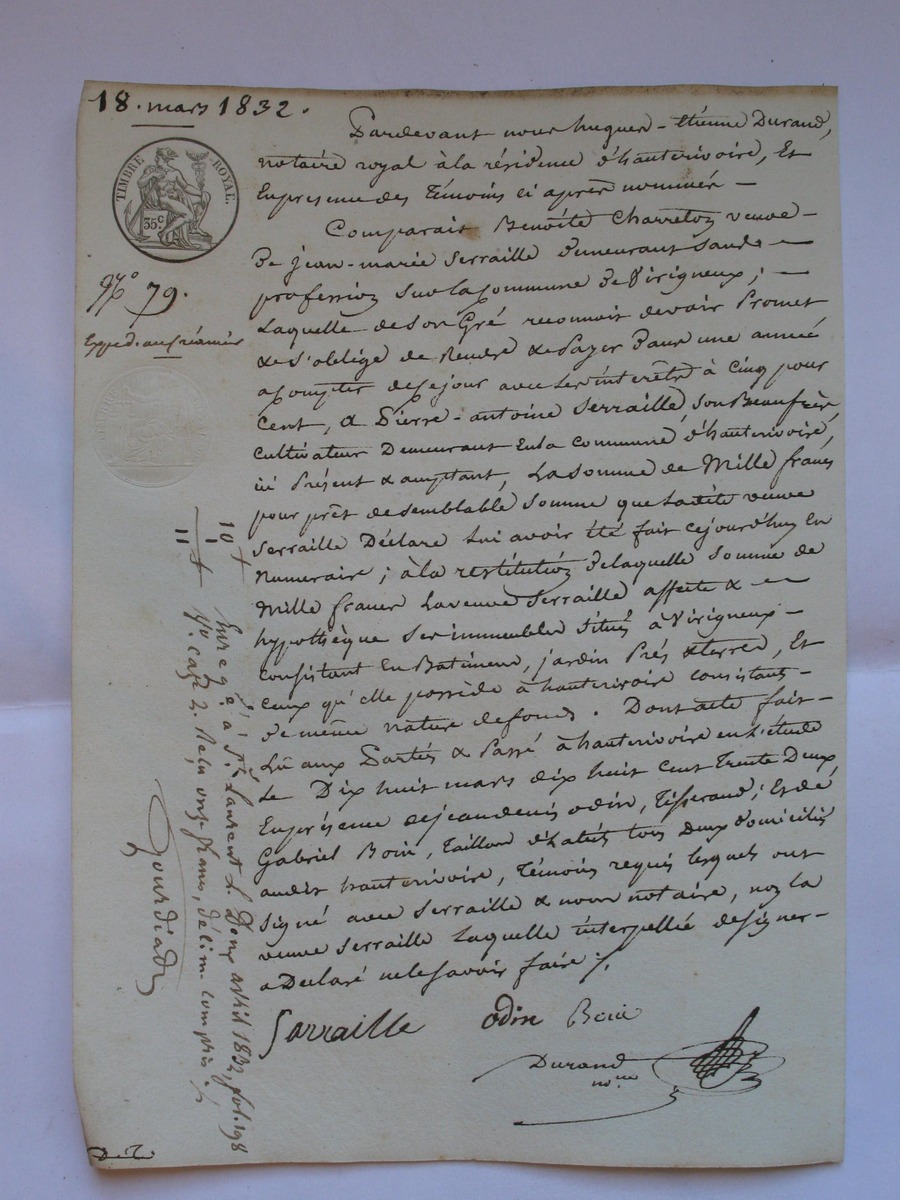 18. mars 1832.
TIMBRE ROYAL.
35 c.
N.º 79.
Expéd. au créancier
Pardevant nous hugues-étienne Durand,
notaire royal à la résidence d'hauterivoire, Et
En présence des Témoins ci après nommés —
Comparait Benoîte Charretoz veuve —
De jean-marie Serraille Demeurant Sande —
profession Sur la Commune De Virigneux ; —
Laquelle de Son Gré reconnoit devoir Promet
& s'oblige de Rendre & Payer Dans une année
a compter de ce jour avec les intérêts à Cinq pour
Cent, a Pierre-antoine Serraille Son Beaufrère,
Cultivateur Demeurant En la Commune d'hauterivoire,
ici Présent & acceptant, La Somme de Mille francs
pour prêt de semblable Somme que La dite veuve
Serraille Déclare Lui avoir été fait cejourd'huy En
Numeraire ; à la restitution De laquelle Somme de
Mille francs La veuve Serraille affecte & —
hypothèque Ses immeubles Situés à Virigneux —
Consistant En Batimens, jardin Prés & terres, Et
Ceux qu'elle possède à hauterivoire consistants —
De même nature de fonds. Dont acte fait —
Lû aux Parties & Passé à hauterivoire en L'étude
Le Dix huit mars dix huit Cent Trente Deux,
En présence de jean denis odin, Tisserand ; Et de
Gabriel Boin, Tailleur d'habits tous Deux Domiciliés
audit hauterivoire, Témoins requis Lesquels ont
Signé avec Serraille & nous notaire, noz la
veuve Serraille Laquelle interpellée de signer —
a Déclaré ne le savoir faire ;.
Serraille odin Boin
Durand
no.re
10 f
1
11 f
Enreg.é à S.t Laurent L. Deux avril 1832, fol. 198
V.o case 2. Reçu onze francs, décime compris ;.
Gourdiad